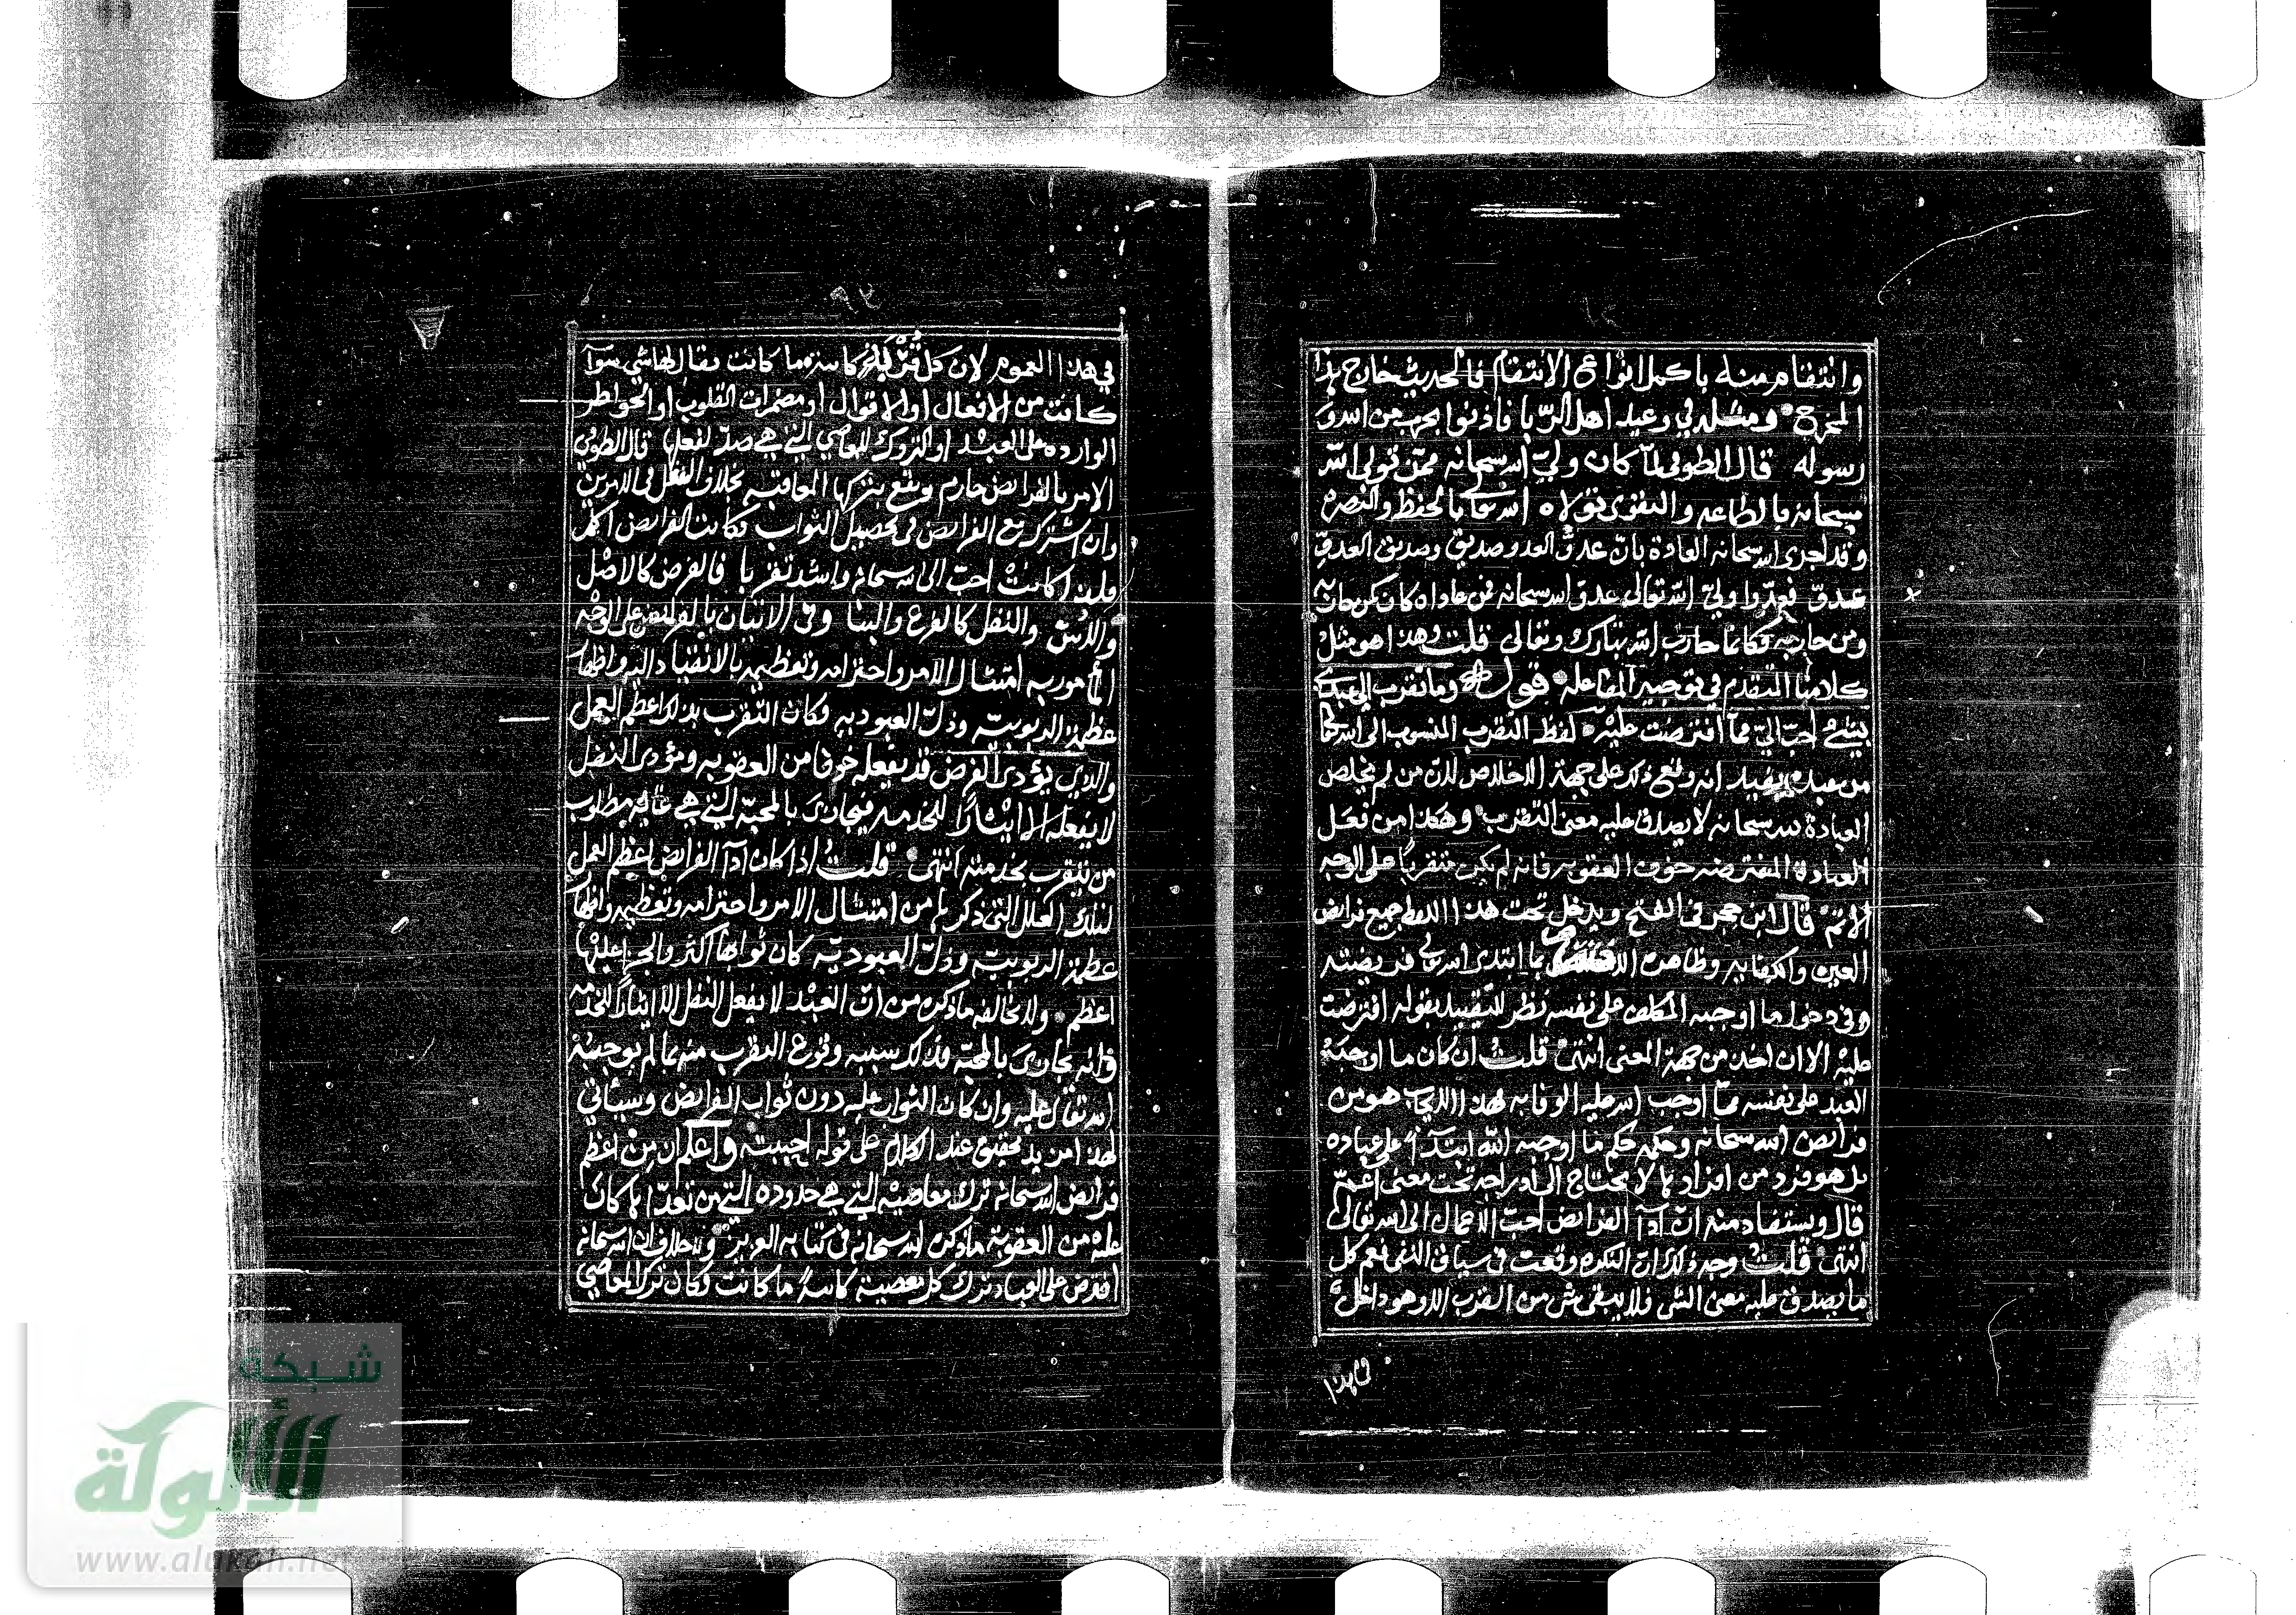 وانتقام منه باكمل انواع الانتقام فالحديث خارج هذا
المخرج ومثله في وعيد اهل الربا فاذنوا بحرب من الله و
رسوله قال الطوفي لما كان وليّ الله سبحانه ممن تولى الله
سبحانه بالطاعه والتقوى تولاه الله تعالى بالحفظ والنصره
وقد اجرى الله سبحانه العادة بانّ عدوّ العدو صديق وصديق العدوّ
عدوّ فعدوّ وليّ الله تعالى عدوّ الله سبحانه فمن عاداه كان كمن حاربه
ومن حاربه فكانما حارب الله تبارك وتعالى قلت وهذا هو مثل
كلامنا المتقدم في توجيه المفاعله قوله وما تقرب الي عبدي
بشيْء احبّ اليّ مما افترضت عليْه لفظ التقرب المنسوب الى الله تعالى
من عبده يفيد انه وقع ذلك على جهة الاخلاص لانّ من لم يخلص
العبادة لله سبحانه لا يصدق عليه معنى التقرب وهكذا من فعل
العبادة المفترضه خوف العقوبه فانه لم يكن متقربًا على الوجه
الاتمّ قال ابن حجر في الفتح ويدخل تحت هذا اللفظ جميع فرائض
العين والكفايه وظاهره الاختصاص بما ابتدى الله تعالى فريضته
وفي دخول ما اوجبه المكلف على نفسه نظر للتقييد بقوله افترضت
عليْه الا ان اخذ من جهة المعنى انتهى قلت ان كان ما اوجبه
العبد على نفسه ممّا اوجب الله عليه الوفا به فهذا الايجاب هو من
فرايض الله سبحانه وحكمه حكم ما اوجبه الله ابتدآ على عباده
بل هو فرد من افرادها لا يحتاج الى ادراجه تحت معنى اعمّ
قال ويستفاد منه انّ ادآ الفرايض احبّ الاعمال الى الله تعالى
انتهى قلت وجه ذلك ان النكره وقعت في سياق النفي فعم كل
ما يصدق عليه معنى الشى فلا يبقى شى من القرب الا وهو داخل
في هذا
في هذا العموم لان كل قربة كاينة ما كانت يقال لها شي سوآ
كانت من الافعال او الاقوال او مضمرات القلوب او الخواطر
الوارده على العبد او التروك للمعاصي التي هي ضدّ لفعلها قال الطوفي
الامر بالفرايض جازم ويقع بتركها المعاقبه بخلاف النفل في الامرين
وان اشترك مع الفرايض في تحصيل الثواب فكانت الفرايض اكمل
فلهذا كانتْ احبّ الى الله سبحانه واشد تقربا فالفرض كالاصْل
والاسّ والنفل كالفرع والبنا وفي الاتيان بالفرايض على الوجْه
المامور به امتثال الامر واحترامه وتعظيمه بالانقياد اليه واظهار
عظمة الربوبيّه وذلّ العبوديه فكان التقرب بذلك اعظم العمل
والذي يؤدى الفرض قد يفعله خوفا من العقوبه ومؤدى النفل
لا يفعله الا ايثارًا للخدمه فيجازى بالمحبّه التي هي غاية مطلوب
من يتقرب بخدمته انتهى قلت اذا كان ادآ الفرايض اعظم العمل
لتلك العلل التي ذكرها من امتثال الامر واحترامه وتعظيمه واظهار
عظمة الربوبيّه وذلّ العبوديّه كان ثوابها اكثر والجزا عليْها
اعظم ولا يخالفه ما ذكره من انّ العبْد لا يفعل النفل الا ايثارًا للخدمه
وانه يجازى بالمحبّه فذلك سببه وقوع التقرب منه بما لم يوجبْه
الله تعالى عليه وان كان الثواب عليه دون ثواب الفرايض وسياتي
لهذا مزيد تحقيق عند الكلام على قوله احببته واعلم ان منْ اعظم
فرايض الله سبحانه ترك معاصيه التي هي حدوده التي من تعدّاها كان
عليْه من العقوبة ما ذكره الله سبحانه في كتابه العزيز ولا خلاف ان الله سبحانه
افترض على العباد ترك كل معصية كاينة ما كانت فكان ترك المعاصي
شبكة
الألوكة
www.alukah.net